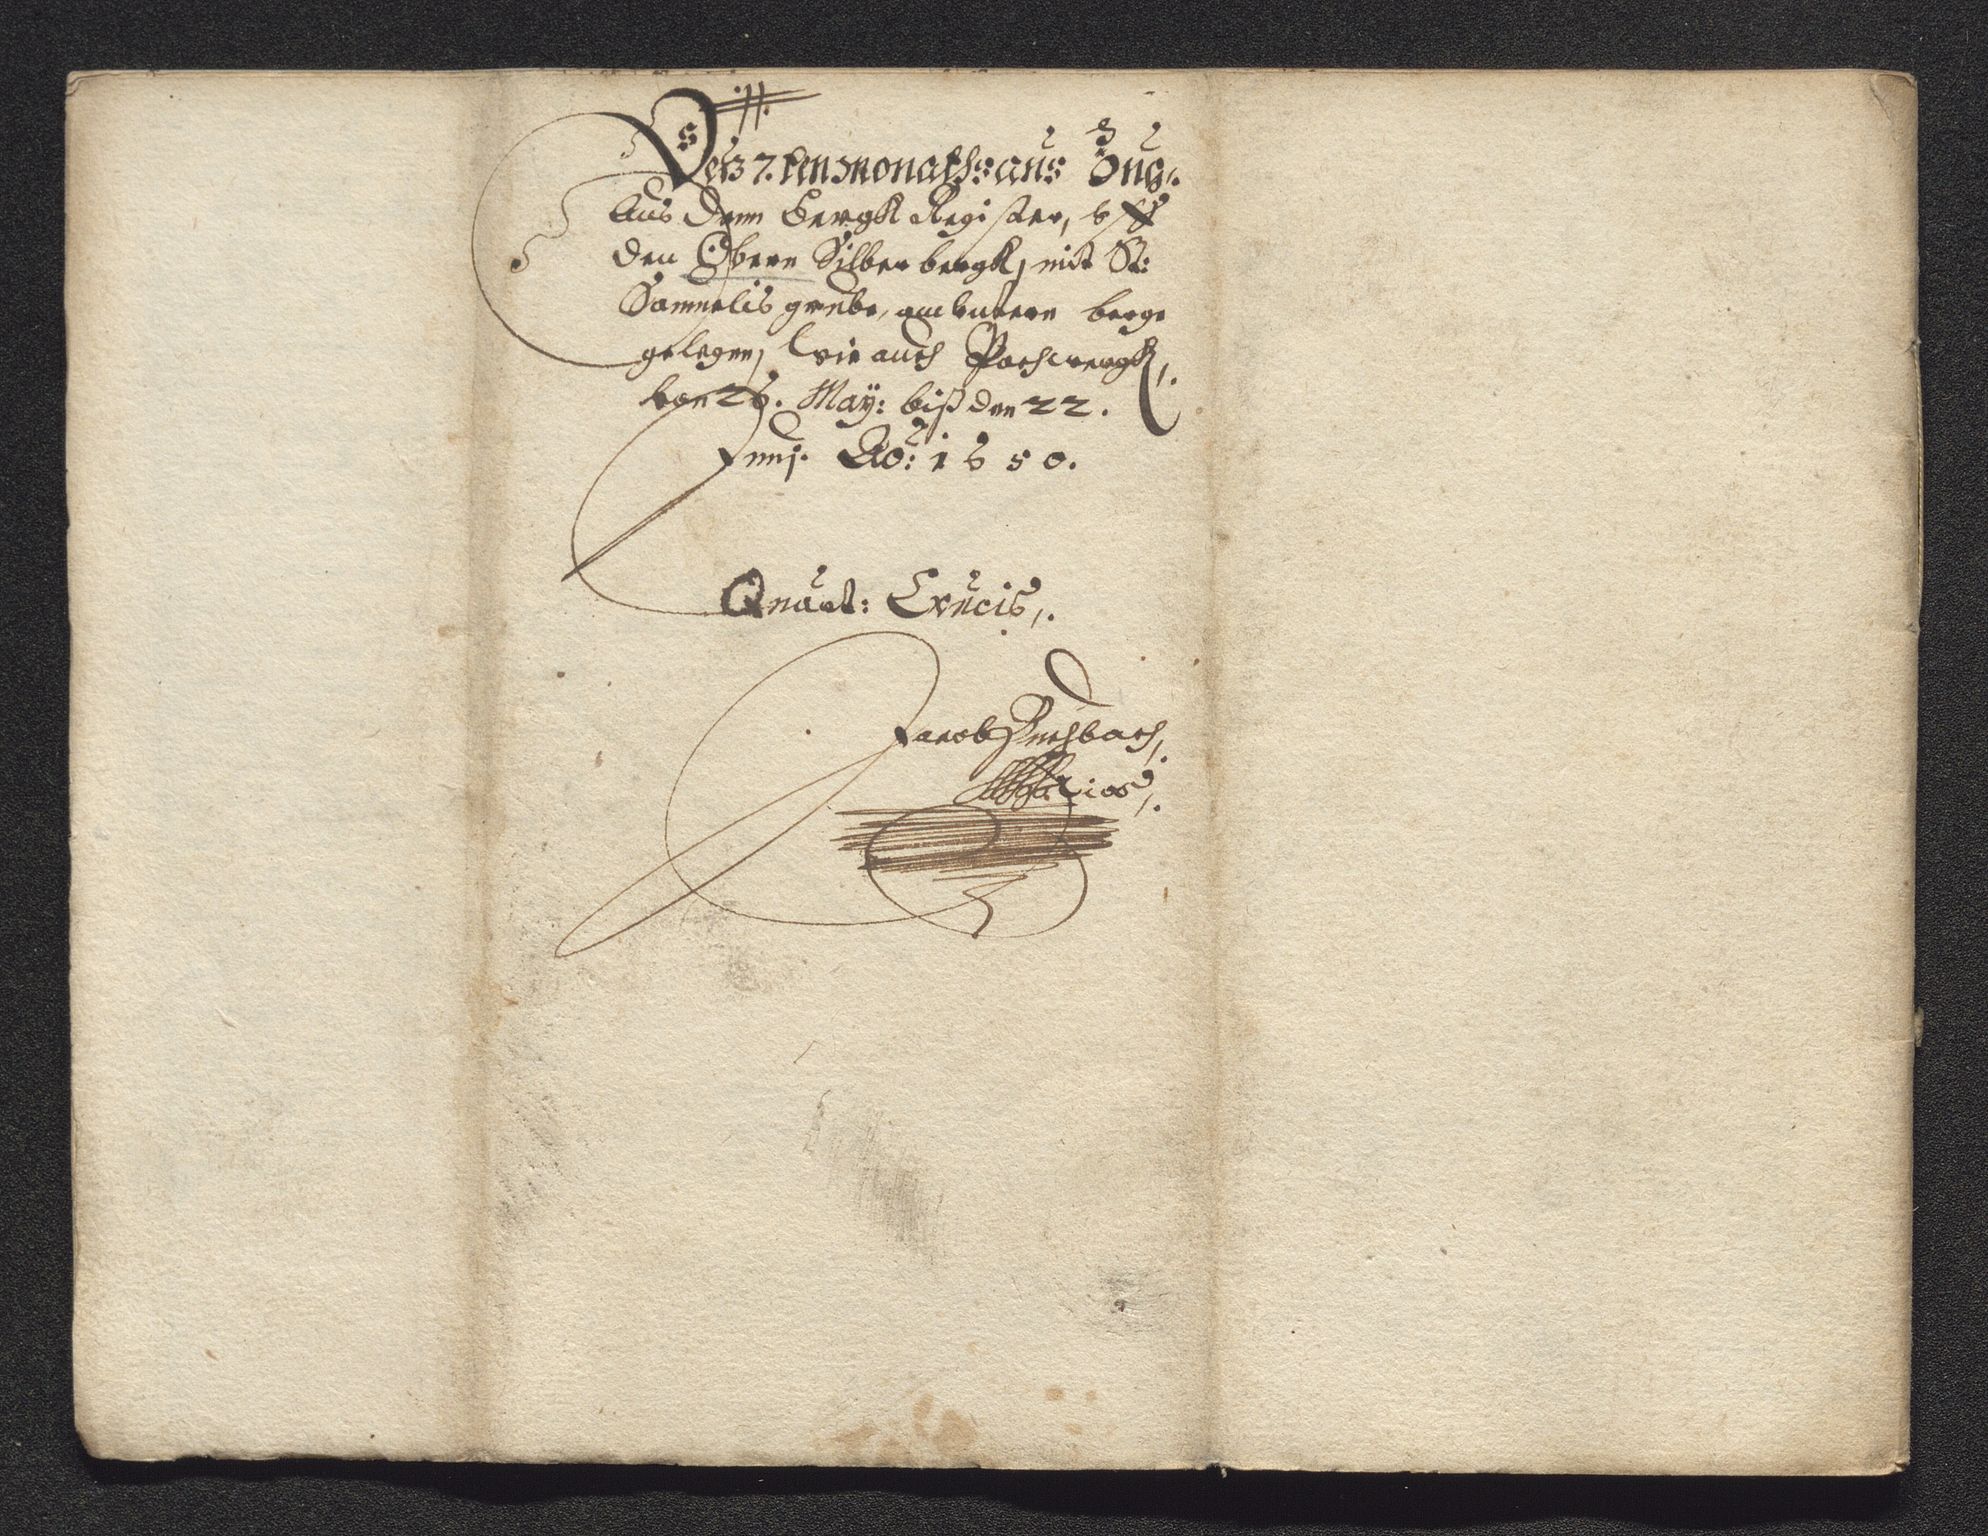 Des 7.ten Monaths aus Zug,.
Aus dem Bergk Register, vff
den Obern Silberbergk, mit St:
Samuelis grube, am vntern berge
gelegen, wie auch Pochwergk,.
von 26. May: biß den 22.
Junj. Ao: 1650.
Quart: Crucis,.
Jacob Puchbach,.